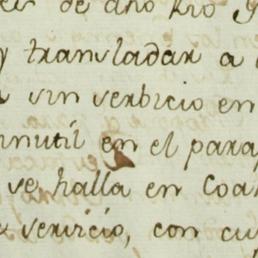 de dho Rio
y transladar a
sin serbicio en
inutil en el para
se halla en Coa
servicio, con cu